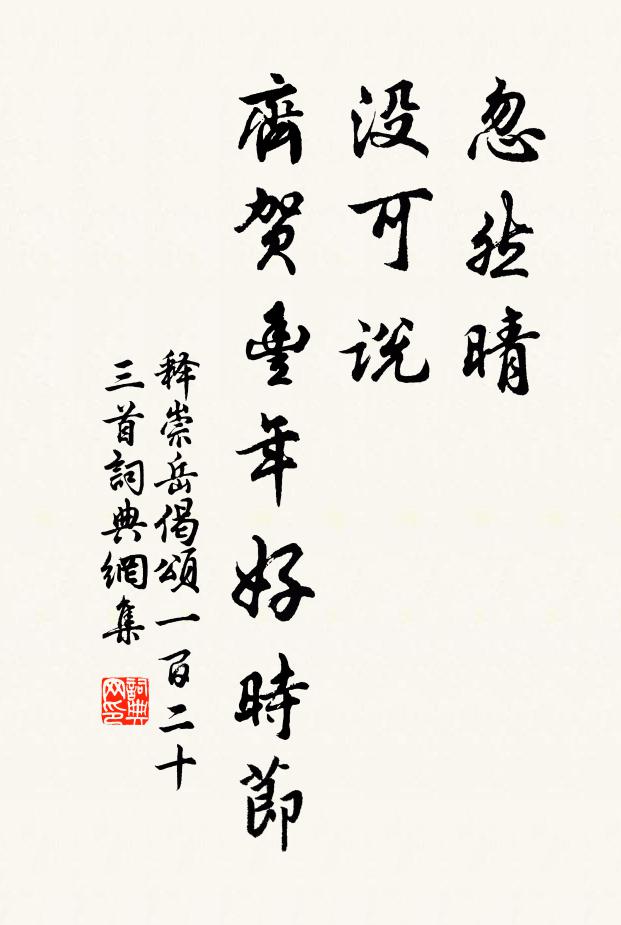 忽然晴
没可说
齊賀豐年好時節
释崇岳偈頌一百二十
三首詞典網集
詞典网印